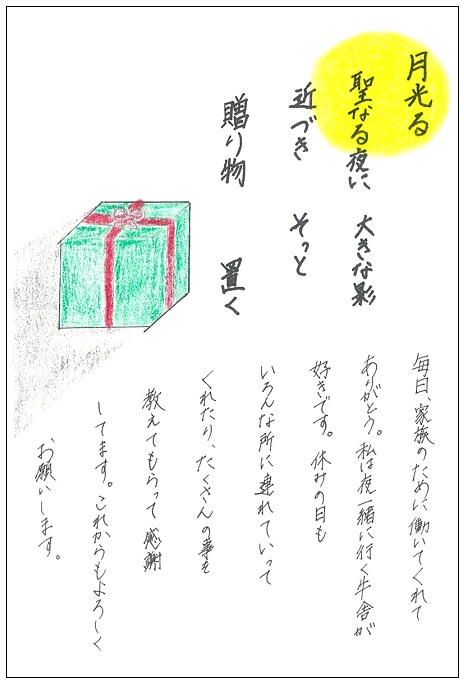 月光る
聖なる夜に　大きな影
近づき　そっと
贈り物　置く
毎日、家族のために働いてくれて
ありがとう。私は夜一緒に行く牛舎が
好きです。休みの日も
いろんな所に連れていって
くれたり、たくさんの事を
教えてもらって感謝
してます。これからもよろしく
お願いします。